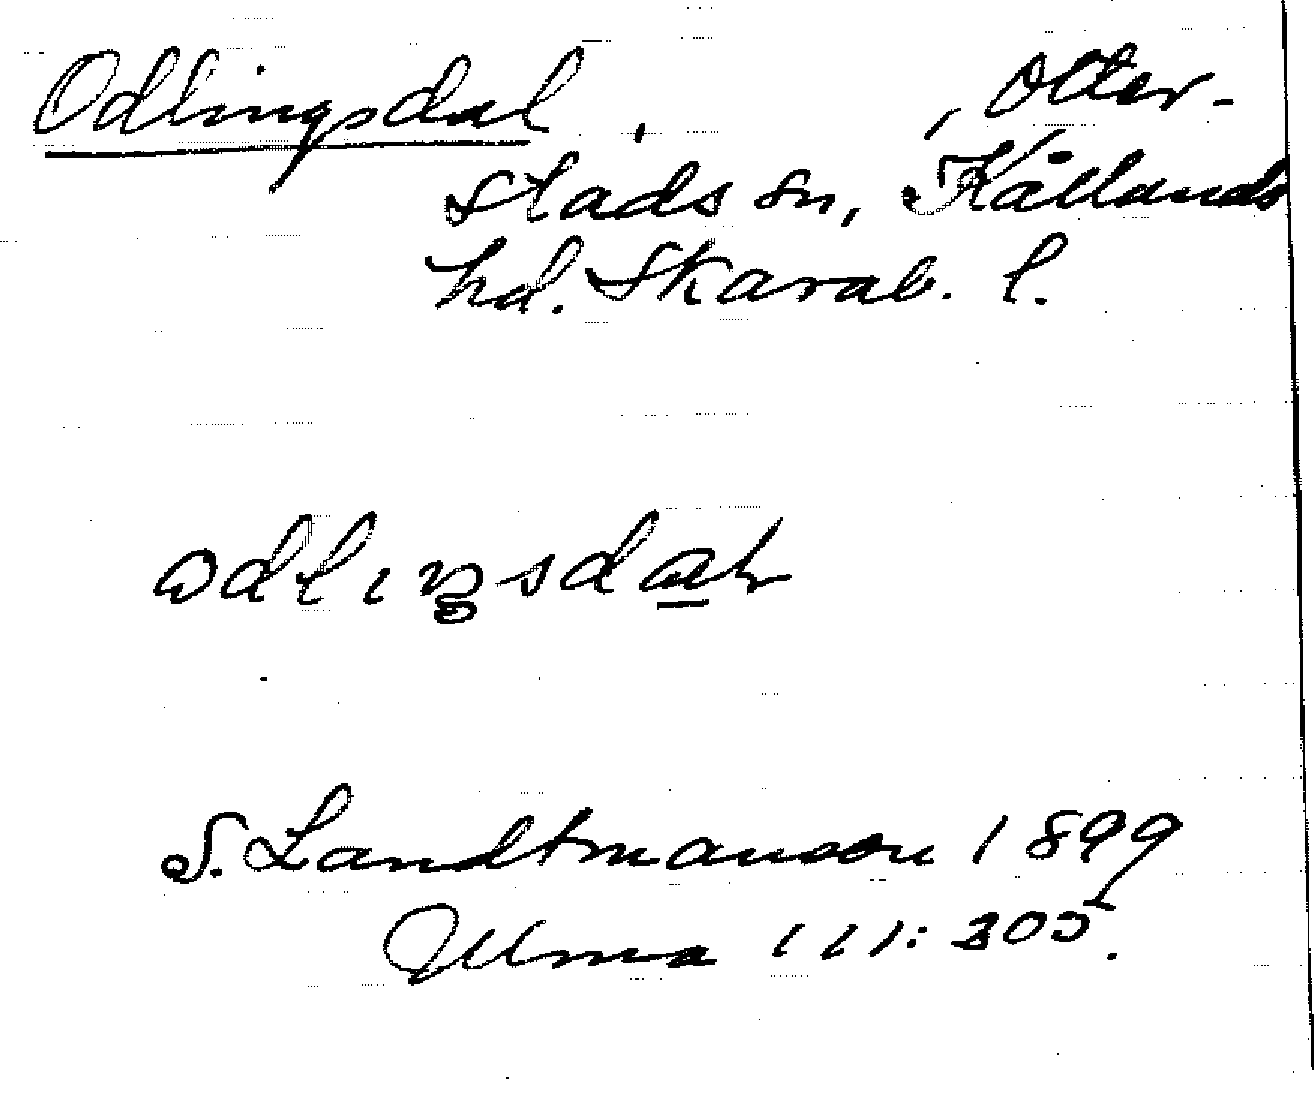 Odlingsdal, , Otter-
stads sn, Kållands
hd. Skarab. l.
odlıŋsdaɫ
S. Landtmanson 1899
Ulma 111:305.